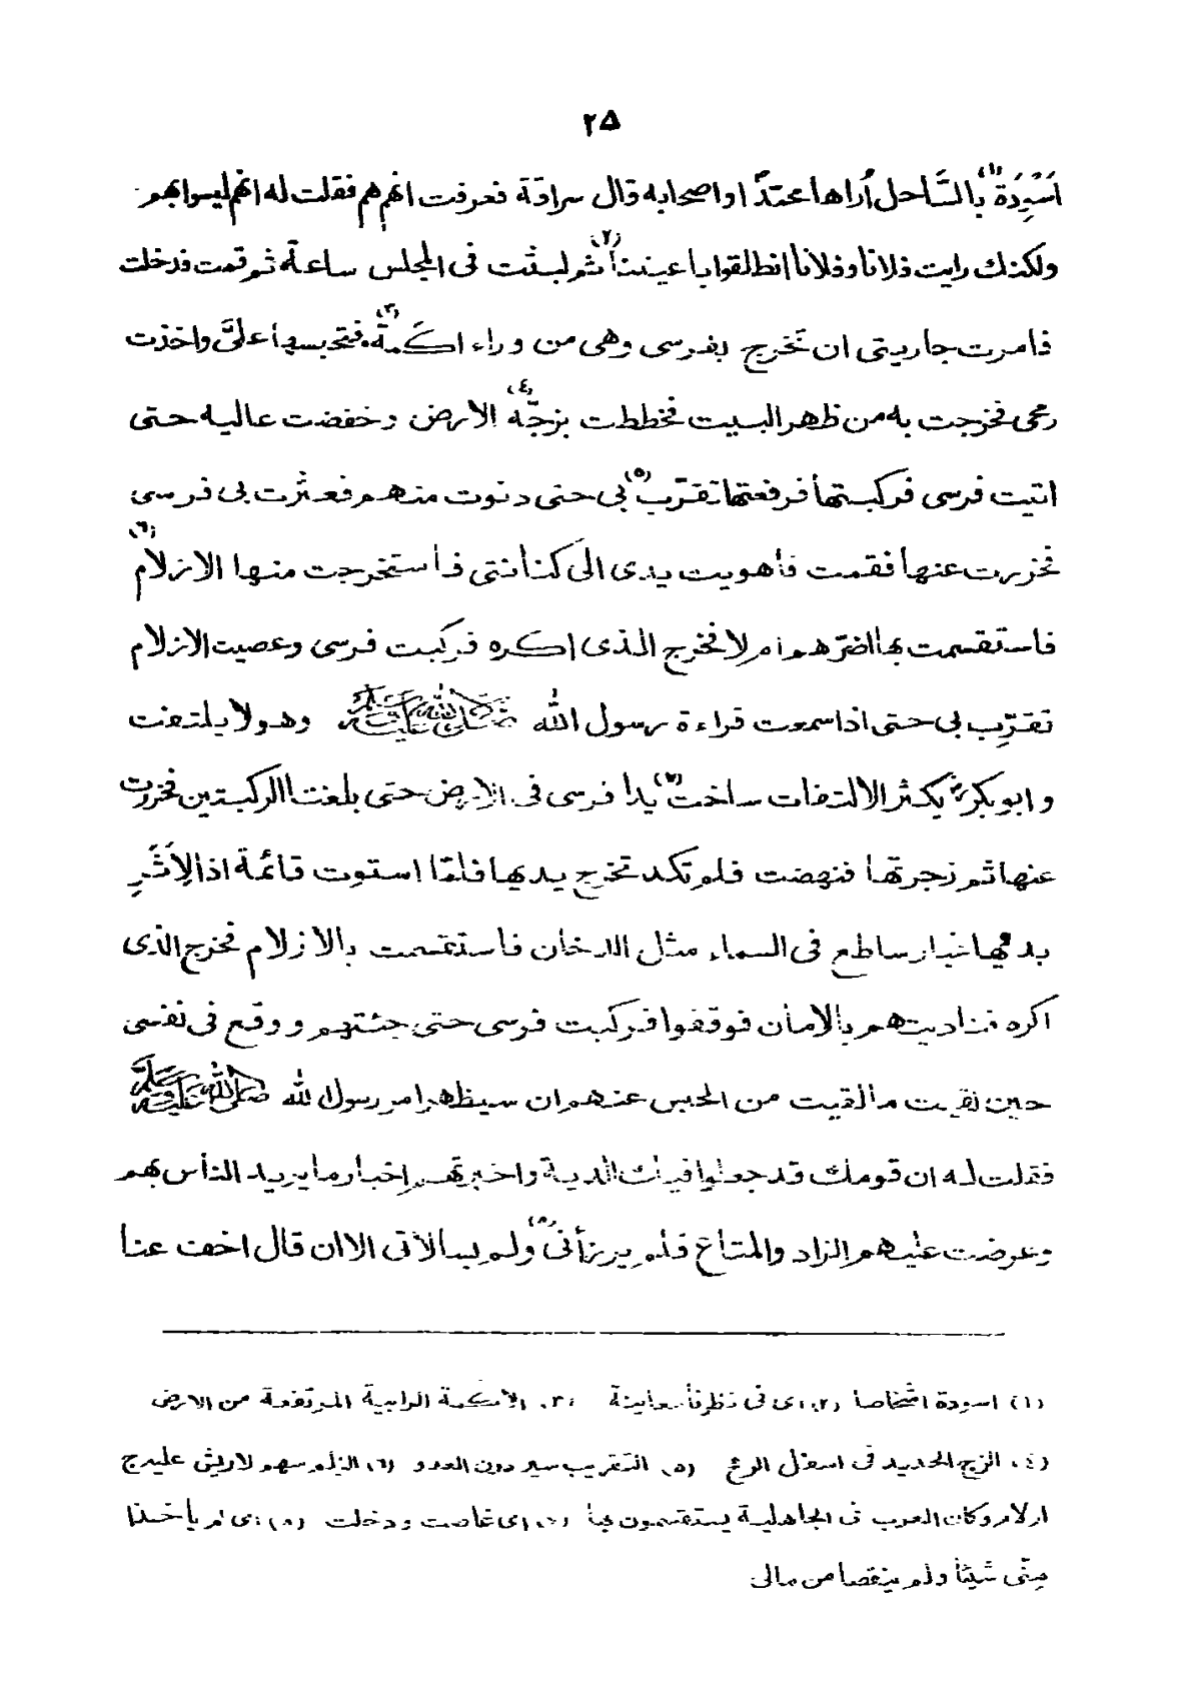 ٢٥
اَسْوِدَةً (١) بالسَّاحل أُراها محمّدًا واصحابه قال سراقة فعرفت انهم هم فقلت له انهم ليسوا بهم
ولكنك رايت فلانا وفلانا انطلقوا باعيننا (٢) ثم لبثت فى المجلس ساعة ثم قمت فدخلت
فامرت جاريتى ان تخرج بفرسى وهى من وراء اكَمة (٣) فتحبسها علىَّ واخذت
رمحى فخرجت به من ظهر البيت فخططت بزجّه (٤) الارض وخفضت عاليه حتى
اتيت فرسى فركبتها فرفعتها تقرّب (٥) بى حتى دنوت منهم فعثرت بى فرسى
فخررت عنها فقمت فأهويت يدى الى كنانتى فاستخرجت منها الازلام (٦)
فاستقسمت بها اضرّهم ام لا فخرج الذى اكره فركبت فرسى وعصيت الازلام
تقرّب بى حتى اذا سمعت قراءة رسول الله صلى الله عليه وسلم وهو لا يلتفت
وابوبكرؓ يكثر الالتفات ساخت (٧) يدا فرسى فى الارض حتى بلغتا الركبتين فخررت
عنها ثم زجرتها فنهضت فلم تكد تخرج يديها فلمّا استوت قائمة اذا لِاَثَرِ
يديها غبار ساطع فى السماء مثل الدخان فاستقسمت بالازلام فخرج الذى
اكره فناديتهم بالامان فوقفوا فركبت فرسى حتى جئتهم ووقع فى نفسى
حين لقيت ما لقيت من الحبس عنهم ان سيظهر امر رسول الله صلى الله عليه وسلم
فقلت له ان قومك قد جعلوا فيك الدية واخبرتهم اخبار ما يريد الناس بهم
وعرضت عليهم الزاد والمتاع فلم يرزأنى (٨) ولم يسالانى الا ان قال اخف عنا
(١) اسودة اشخاصا (٢) اى فى نظرنا معاينة (٣) الاكمة الرابية المرتفعة من الارض
(٤) الزج الحديد فى اسفل الرمح (٥) التقريب سير دون العدو (٦) الزلم سهم لا ريش عليه ج
ازلام وكان العرب فى الجاهلية يستقسمون بها (٧) اى غاصت ودخلت (٨) اى لم يأخذا
منّى شيئا ولم ينقصا من مالى